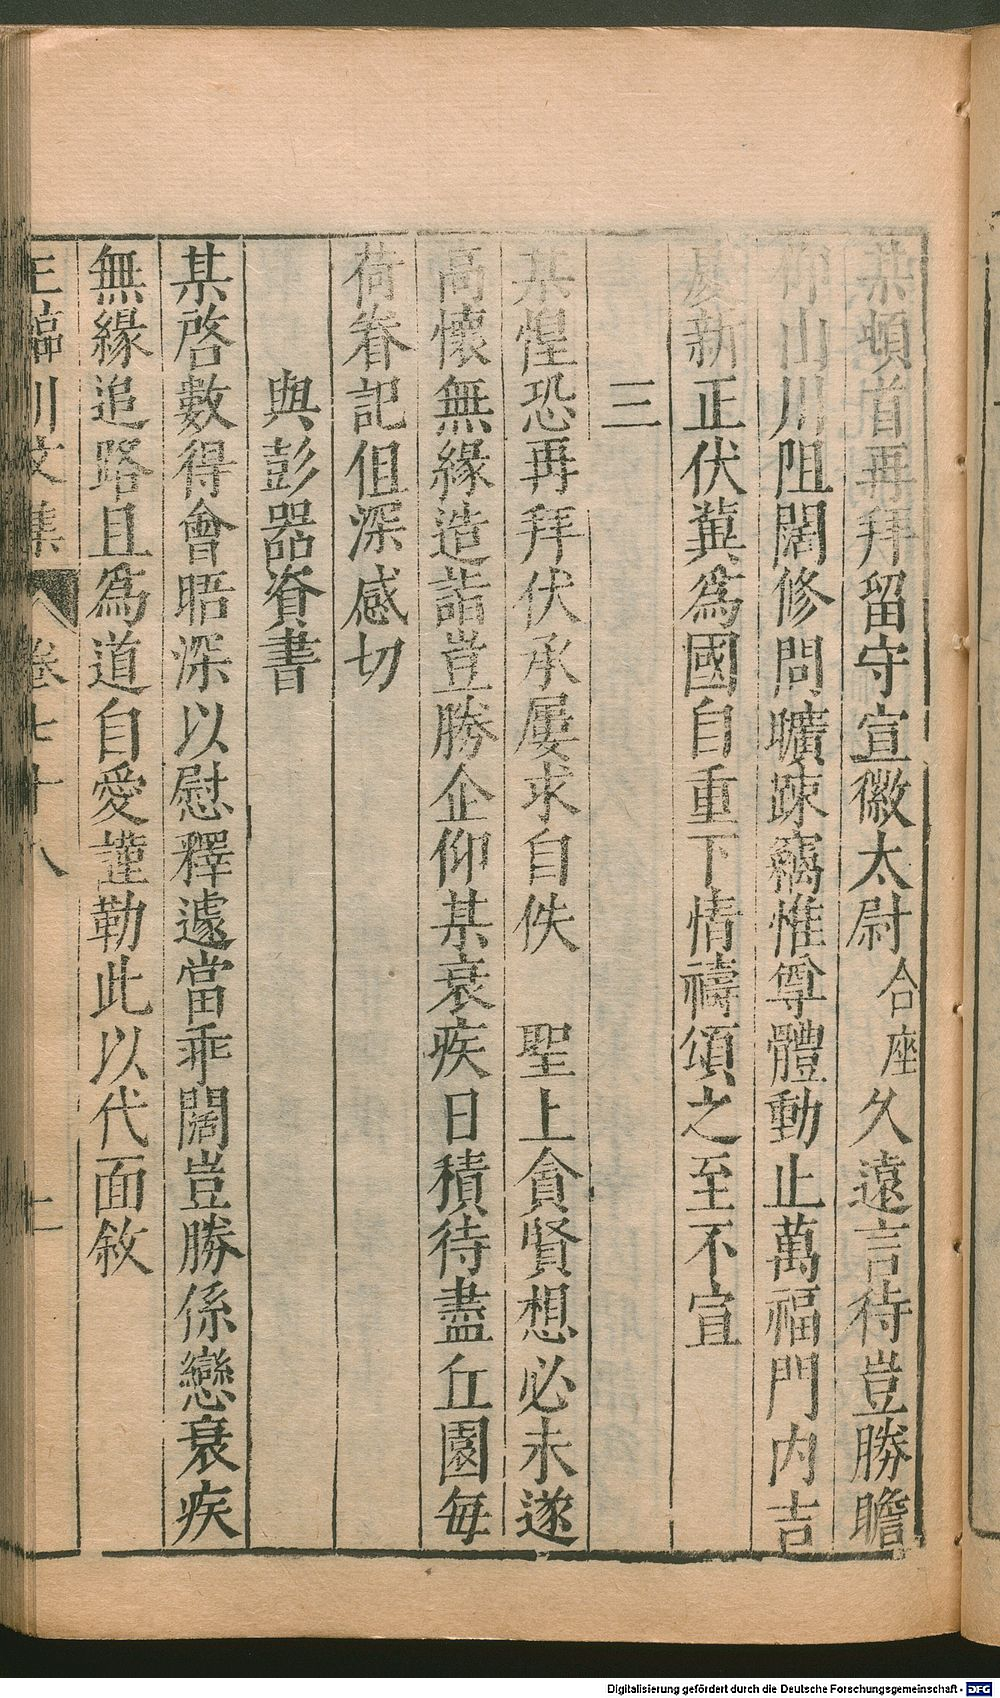 某頓首再拜留守宣徽太尉合座久遠言待豈勝瞻
仰山川阻闊修問曠踈竊惟尊體動止萬福門内吉
慶新正伏冀爲國自重下情禱頌之至不宣
三
某惶恐再拜伏承屢求自佚　聖上貪賢想必未遂
高懷無緣造詣豈勝企仰某衰疾日積待盡丘園每
荷眷記但深感切
與彭器資書
某啓數得會晤深以慰釋遽當乖闊豈勝係戀衰疾
無緣追路且爲道自愛謹勒此以代面敘
王臨川文集　卷七十八　十二
Digitalisierung gefördert durch die Deutsche Forschungsgemeinschaft - DFG